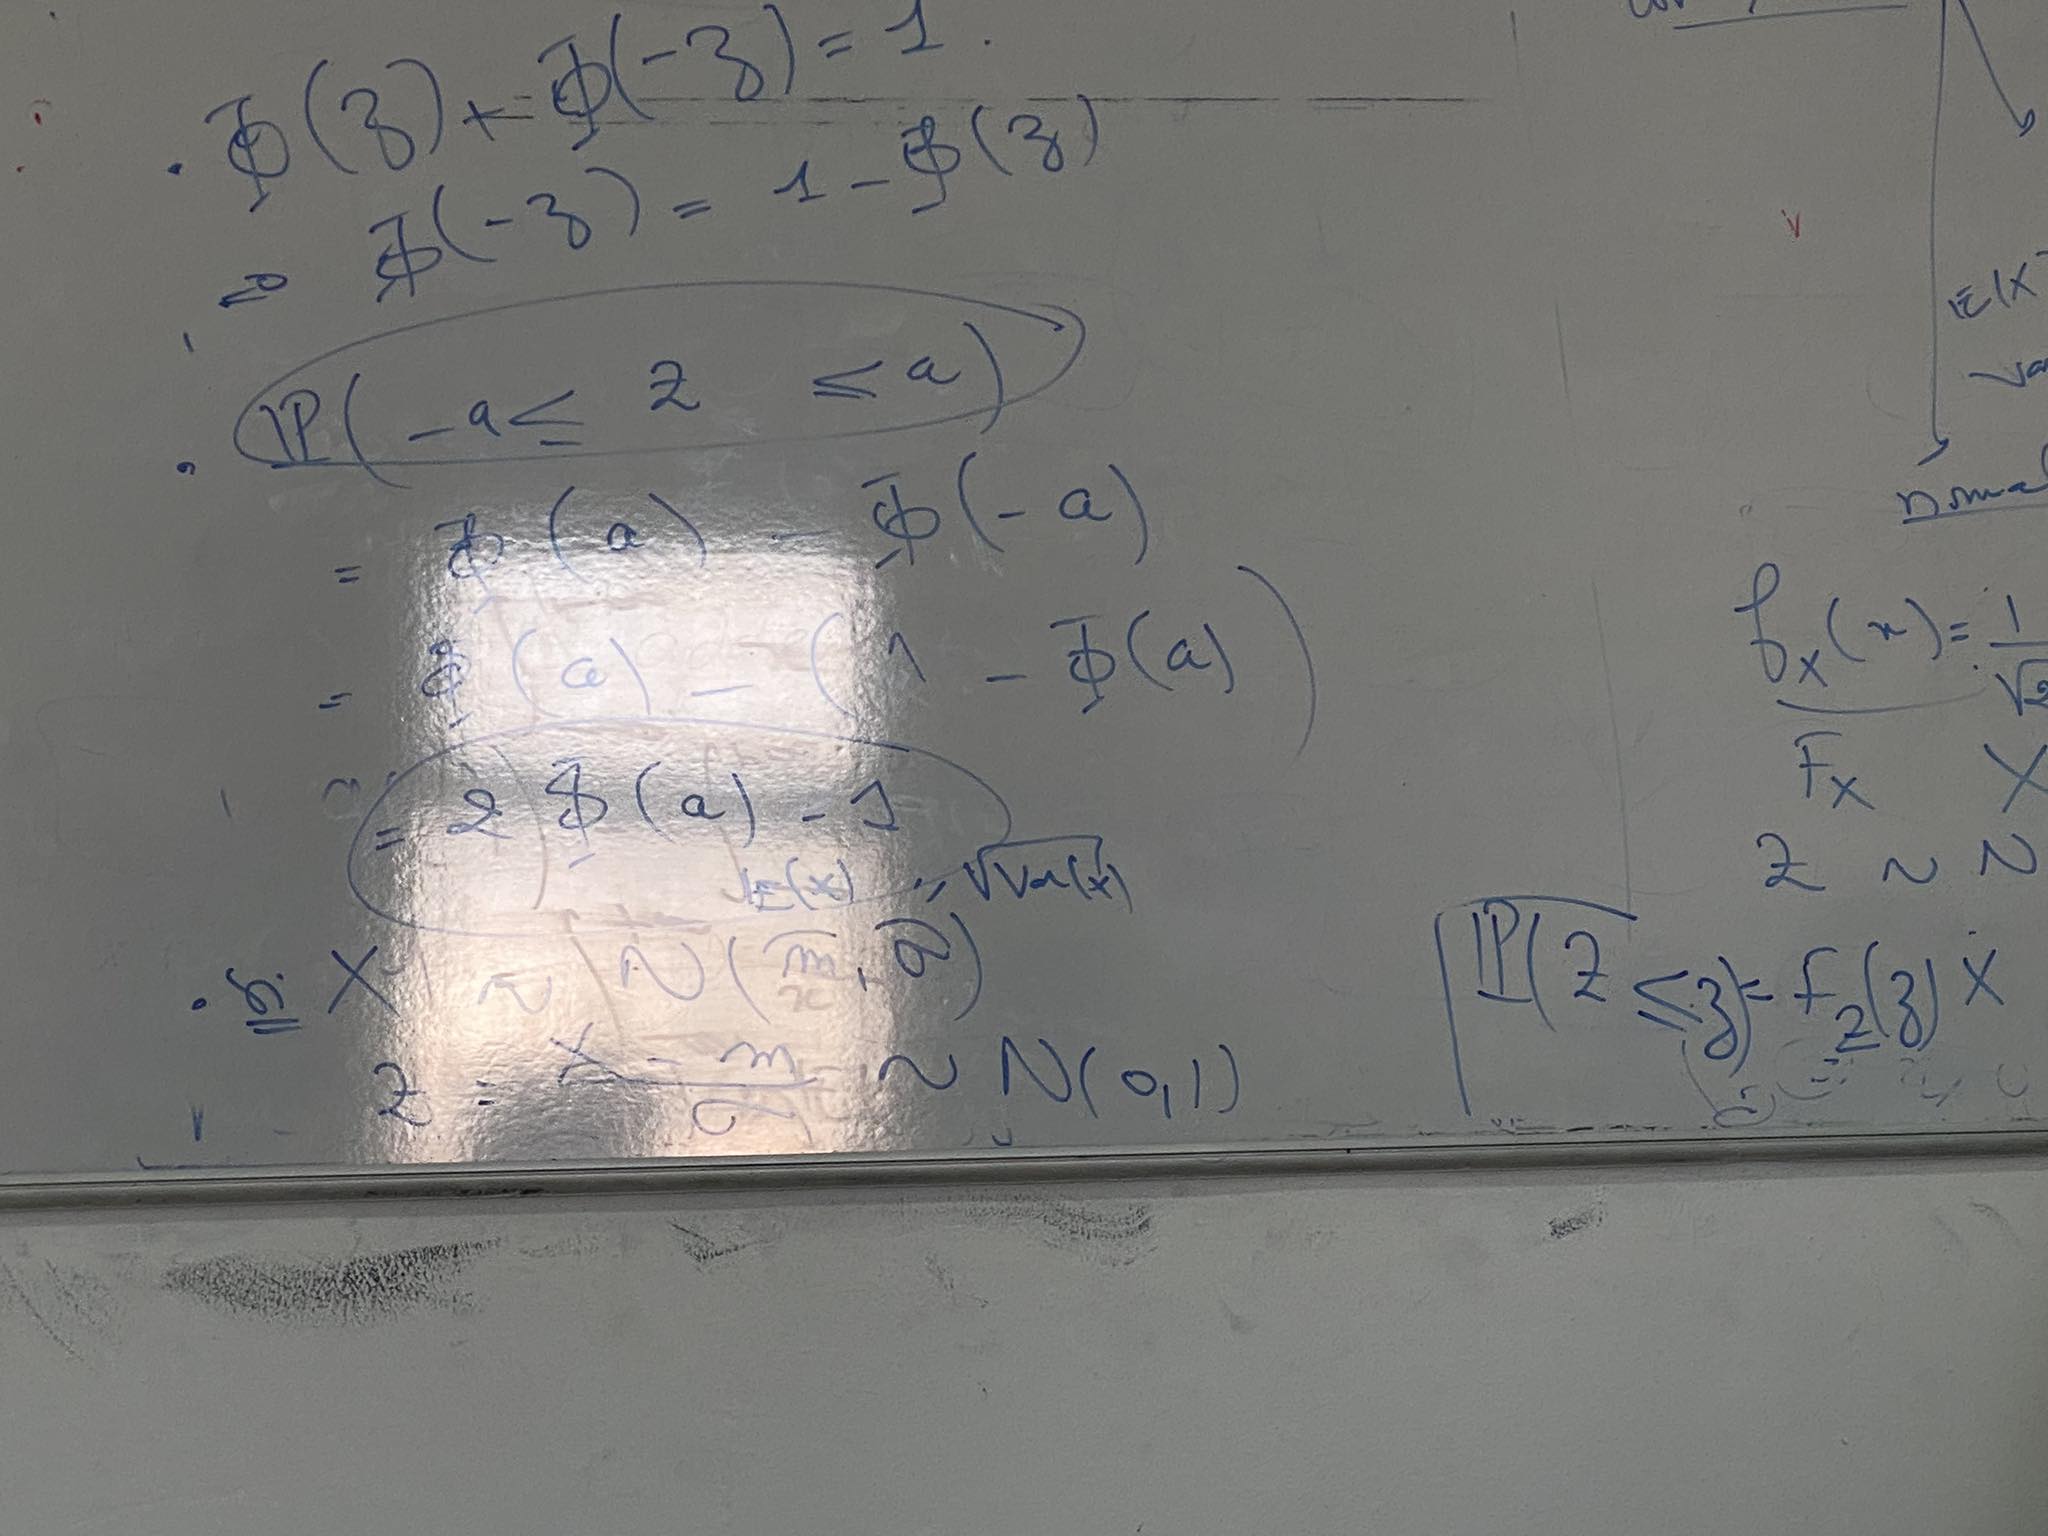 · Φ(z) + Φ(-z) = 1.
⇒ Φ(-z) = 1 - Φ(z)
· ℙ(-a ≤ Z ≤ a)
= Φ(a) - Φ(-a)
= Φ(a) - (1 - Φ(a))
= 2 Φ(a) - 1
E(X) √Var(X)
· si X ~ N(m, σ)
Z = (X - m)/σ ~ N(0,1)
E(X
Va
normal
f_X(x) = 1/√2
F_X X
Z ~ N
ℙ(Z ≤ z) = F_Z(z) X